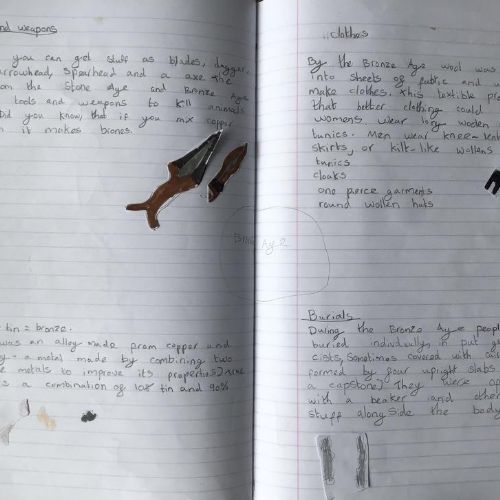 nd weapons
you can get stuff as blades, dagger,
arrowhead, spearhead and a axe the
om the Stone Age and Bronze Age
tools and weapons to kill animals
Did you know, that if you mix copper
it makes bronze.
tin = bronze.
was an alloy made from copper and
y - a metal made by combining two
e metals to improve its properties)
s a combination of 10% tin and 90%
Bronze Age
clothes
By the Bronze Age wool was
into sheets of fabric and u
make clothes. This textible pr
that better clothing could
womens wear long wollen
tunics. Men wear knee-len
skirts, or kilt-like wollens
tunics
cloaks
one pierce garments
round wollen hats
Burials
During the Bronze Age people
buried individually, in put g
cists, sometimes covered with a
formed by four upright slabs
a capstone. They were o
with a beaker and other
stuff alongside the body